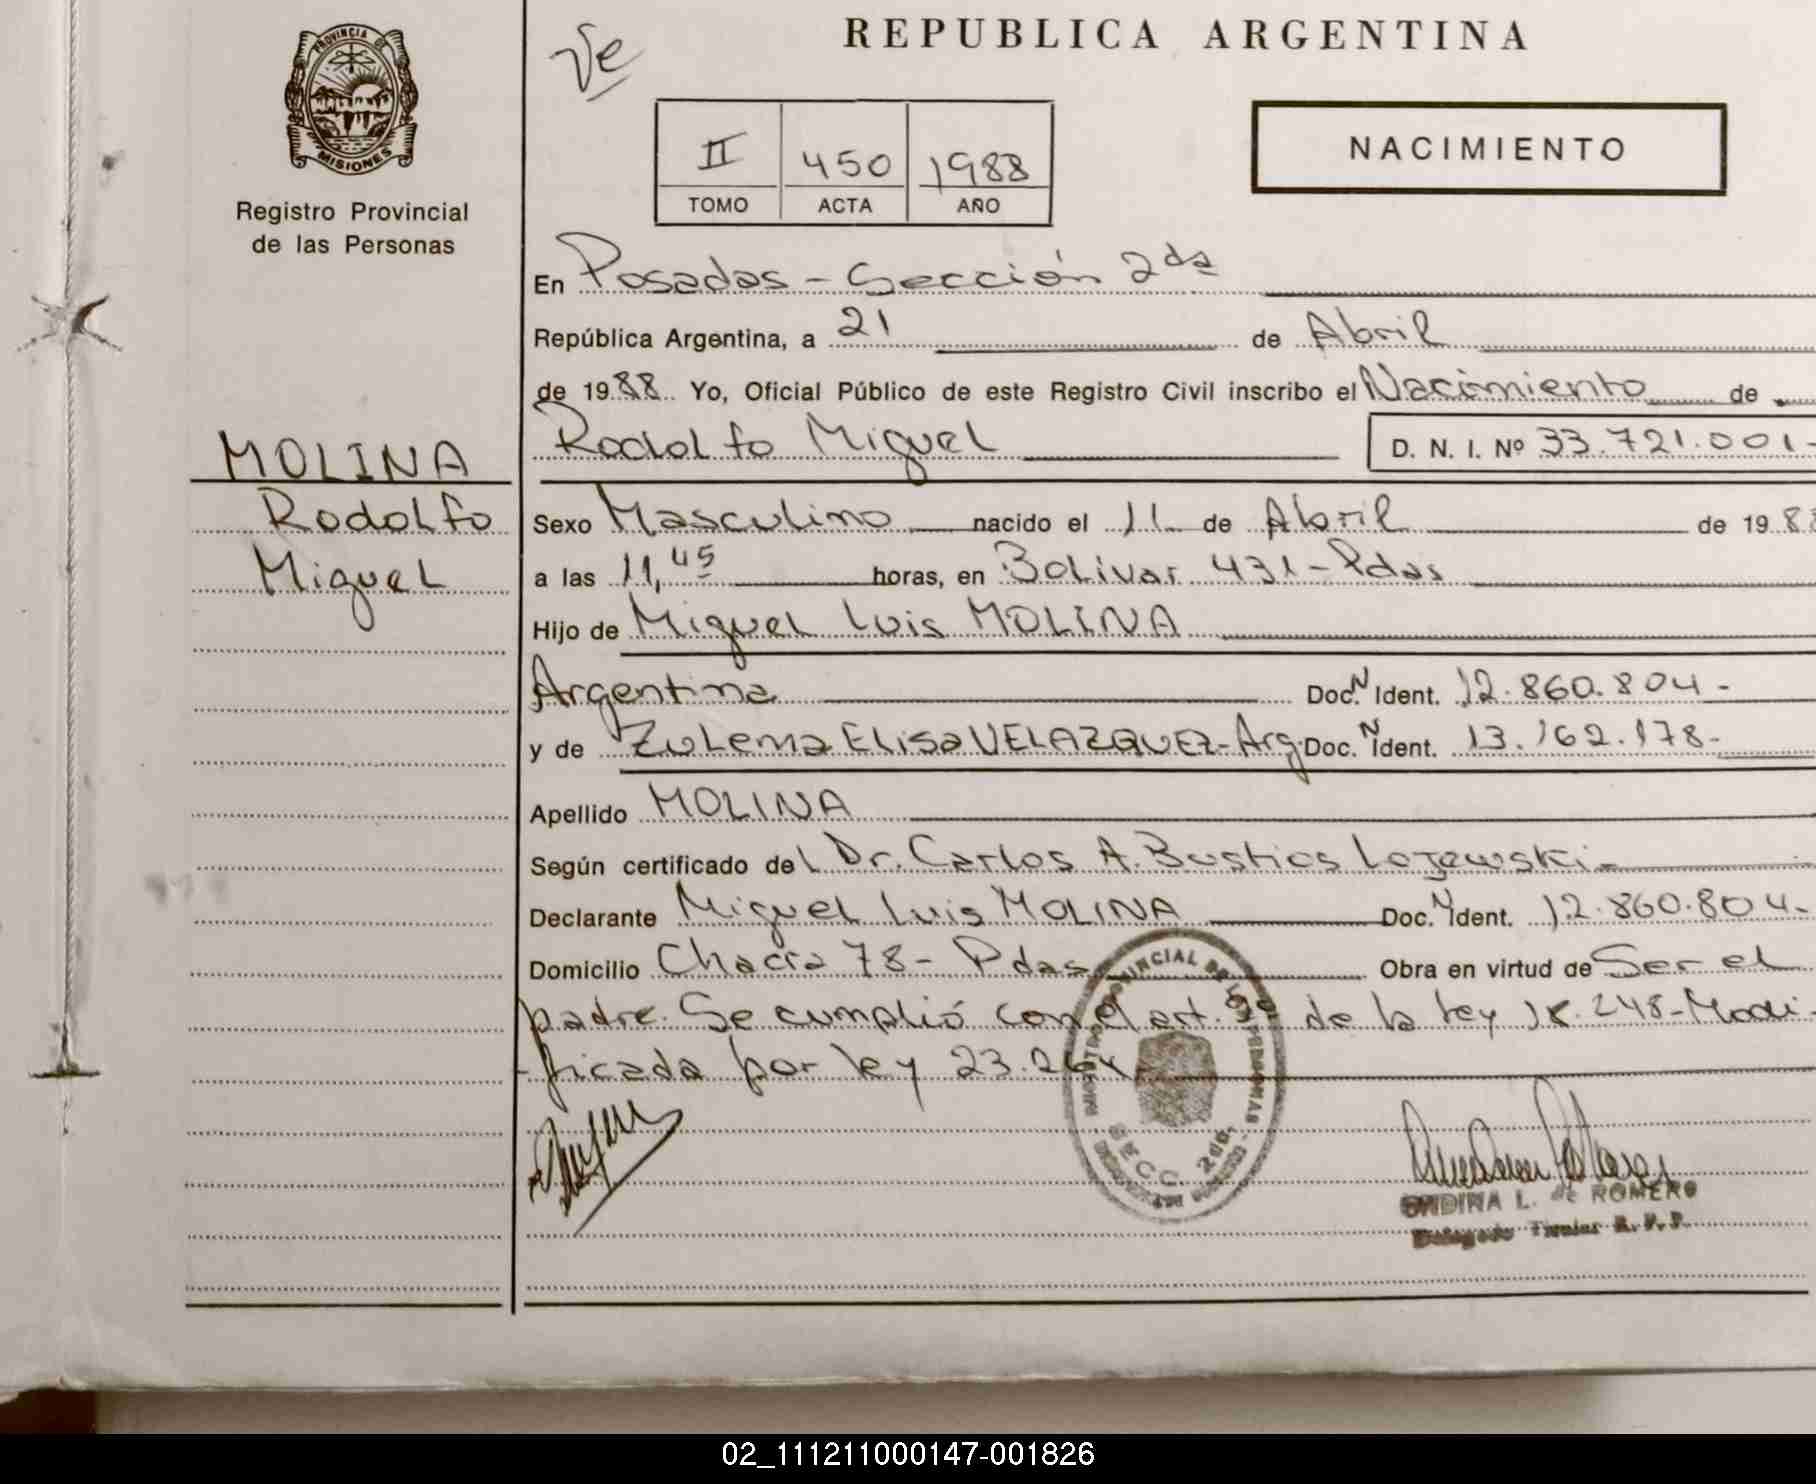 PROVINCIA DE
MISIONES
Registro Provincial
de las Personas
MOLINA
Rodolfo
Miguel
REPUBLICA ARGENTINA
II 450 1988
TOMO ACTA AÑO
NACIMIENTO
En Posadas - Sección 2da
República Argentina, a 21 de Abril
de 1988. Yo, Oficial Público de este Registro Civil inscribo el Nacimiento de
Rodolfo Miguel D. N. I. Nº 33.721.001-
Sexo Masculino nacido el 11 de Abril de 198
a las 11,45 horas, en Bolivar 431 - Pdas
Hijo de Miguel Luis MOLINA
Argentina Doc. N Ident. 12.860.804 -
y de Zulema Elisa VELAZQUEZ - Arg. Doc. N Ident. 13.162.178-
Apellido MOLINA
Según certificado del Dr. Carlos A. Bustios Lojewski -
Declarante Miguel Luis MOLINA Doc. N Ident. 12.860.804-
Domicilio Chacra 78 - Pdas Obra en virtud de Ser el
padre. Se cumplió con el art. de la ley 18.248 - Modi-
-ficada por ley 23.264
SECC. 2da.
ONDINA L. de ROMERO
Delegado Titular R. P. P.
02_111211000147-001826